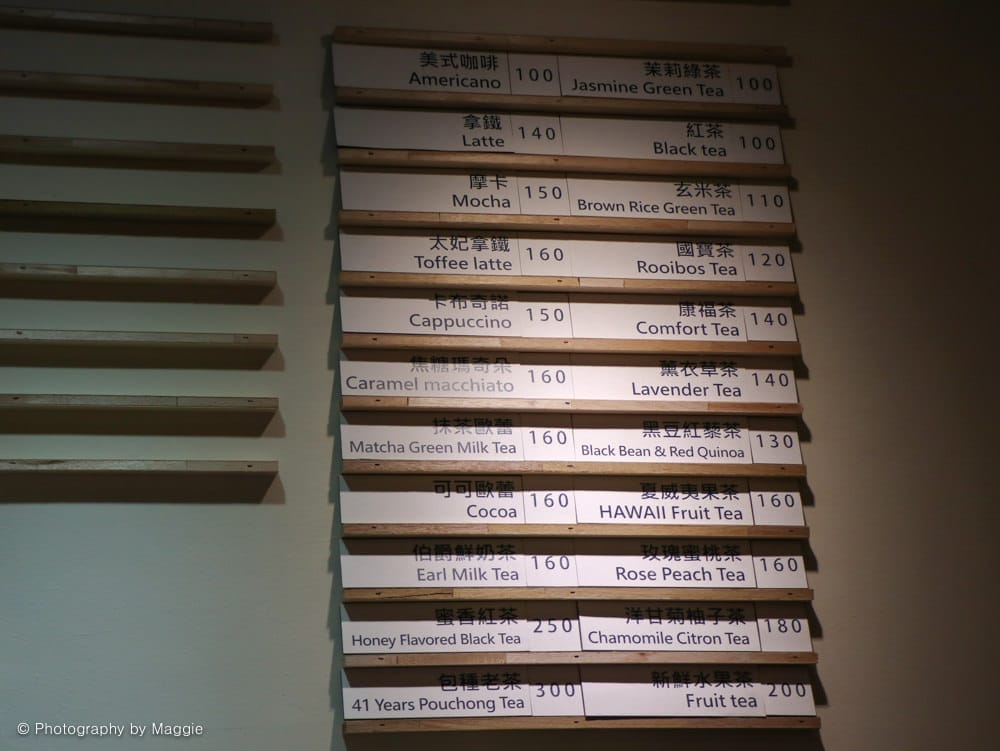 美式咖啡
Americano 100
茉莉綠茶
Jasmine Green Tea 100
拿鐵
Latte 140
紅茶
Black tea 100
摩卡
Mocha 150
玄米茶
Brown Rice Green Tea 110
太妃拿鐵
Toffee latte 160
國寶茶
Rooibos Tea 120
卡布奇諾
Cappuccino 150
康福茶
Comfort Tea 140
焦糖瑪奇朵
Caramel macchiato 160
薰衣草茶
Lavender Tea 140
抹茶歐蕾
Matcha Green Milk Tea 160
黑豆紅藜茶
Black Bean & Red Quinoa 130
可可歐蕾
Cocoa 160
夏威夷果茶
HAWAII Fruit Tea 160
伯爵鮮奶茶
Earl Milk Tea 160
玫瑰蜜桃茶
Rose Peach Tea 160
蜜香紅茶
Honey Flavored Black Tea 250
洋甘菊柚子茶
Chamomile Citron Tea 180
包種老茶
41 Years Pouchong Tea 300
新鮮水果茶
Fruit tea 200
© Photography by Maggie